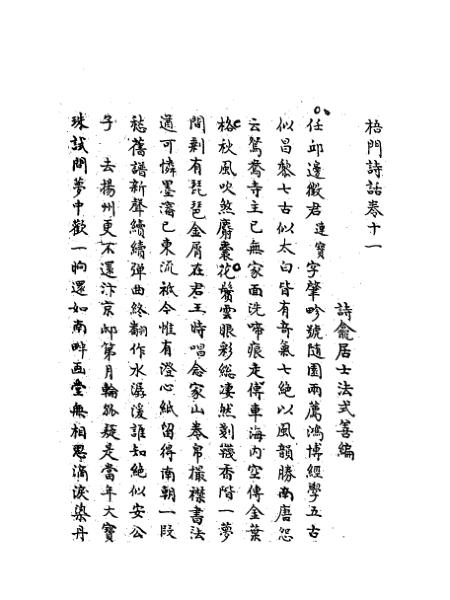 梧門詩話卷十一
詩龕居士法式善編
任邱邊徵君連寶字肇畛號隨園兩薦鴻博經學五古
似昌黎七古似太白皆有奇氣七絕以風韻勝南唐怨
云鴛鴦寺主已無家面洗啼痕走傳車海内空傳金葉
格秋風吹煞麝囊花鬢雲眼彩總凄然剗襪香階一夢
間剩有琵琶金屑在君王時唱念家山奉帚撮襟書法
遒可憐墨瀋已東流祇今惟有澄心紙留得南朝一段
愁舊譜新聲續續彈曲終翻作水潺湲誰知絕似安公
子去揚州更不還汴京邸第月輪孤疑是當年大寶
珠試問夢中歡一晌還如南畔画堂無相思滴淚染丹